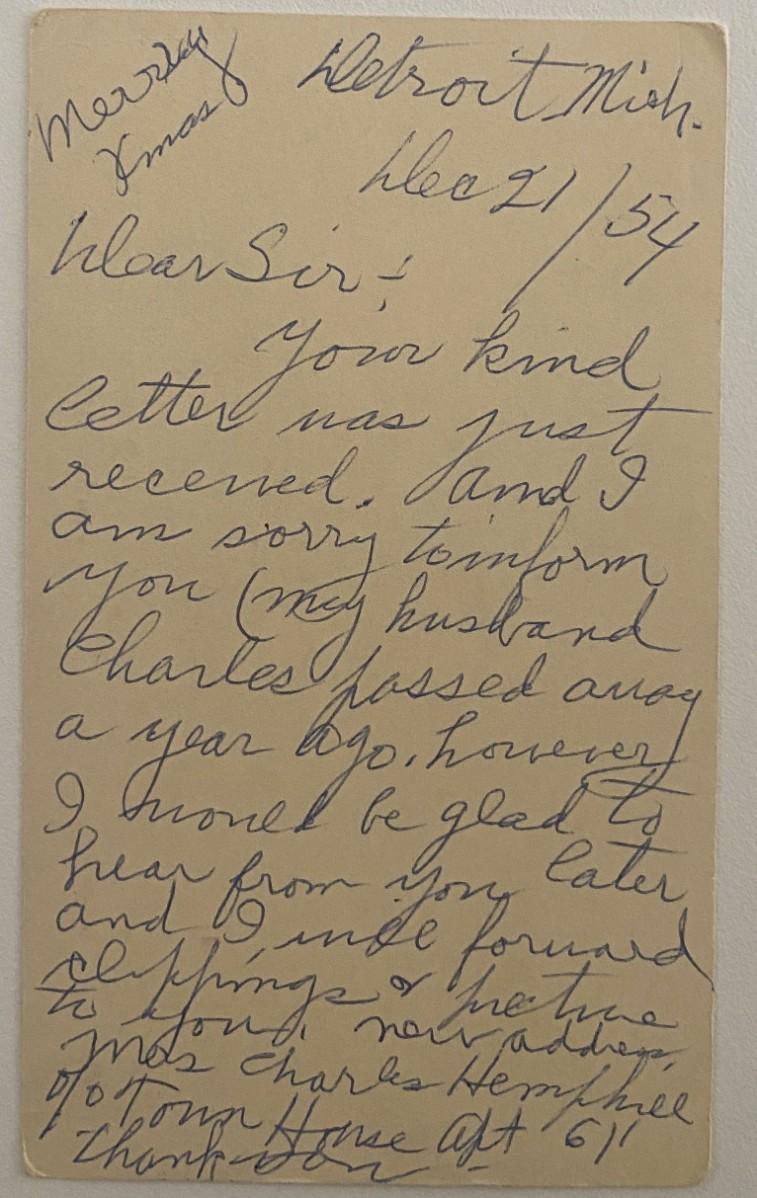 Merry
Xmas
Detroit Mich.
Dec 21/54
Dear Sir:
Your kind
letter was just
received. and I
am sorry to inform
you (my husband
Charles passed away
a year ago. however
I would be glad to
hear from you later
and I will forward
clippings & picture
to you. new address
Mrs Charles Hemphill
c/o Town House Apt 611
Thank You